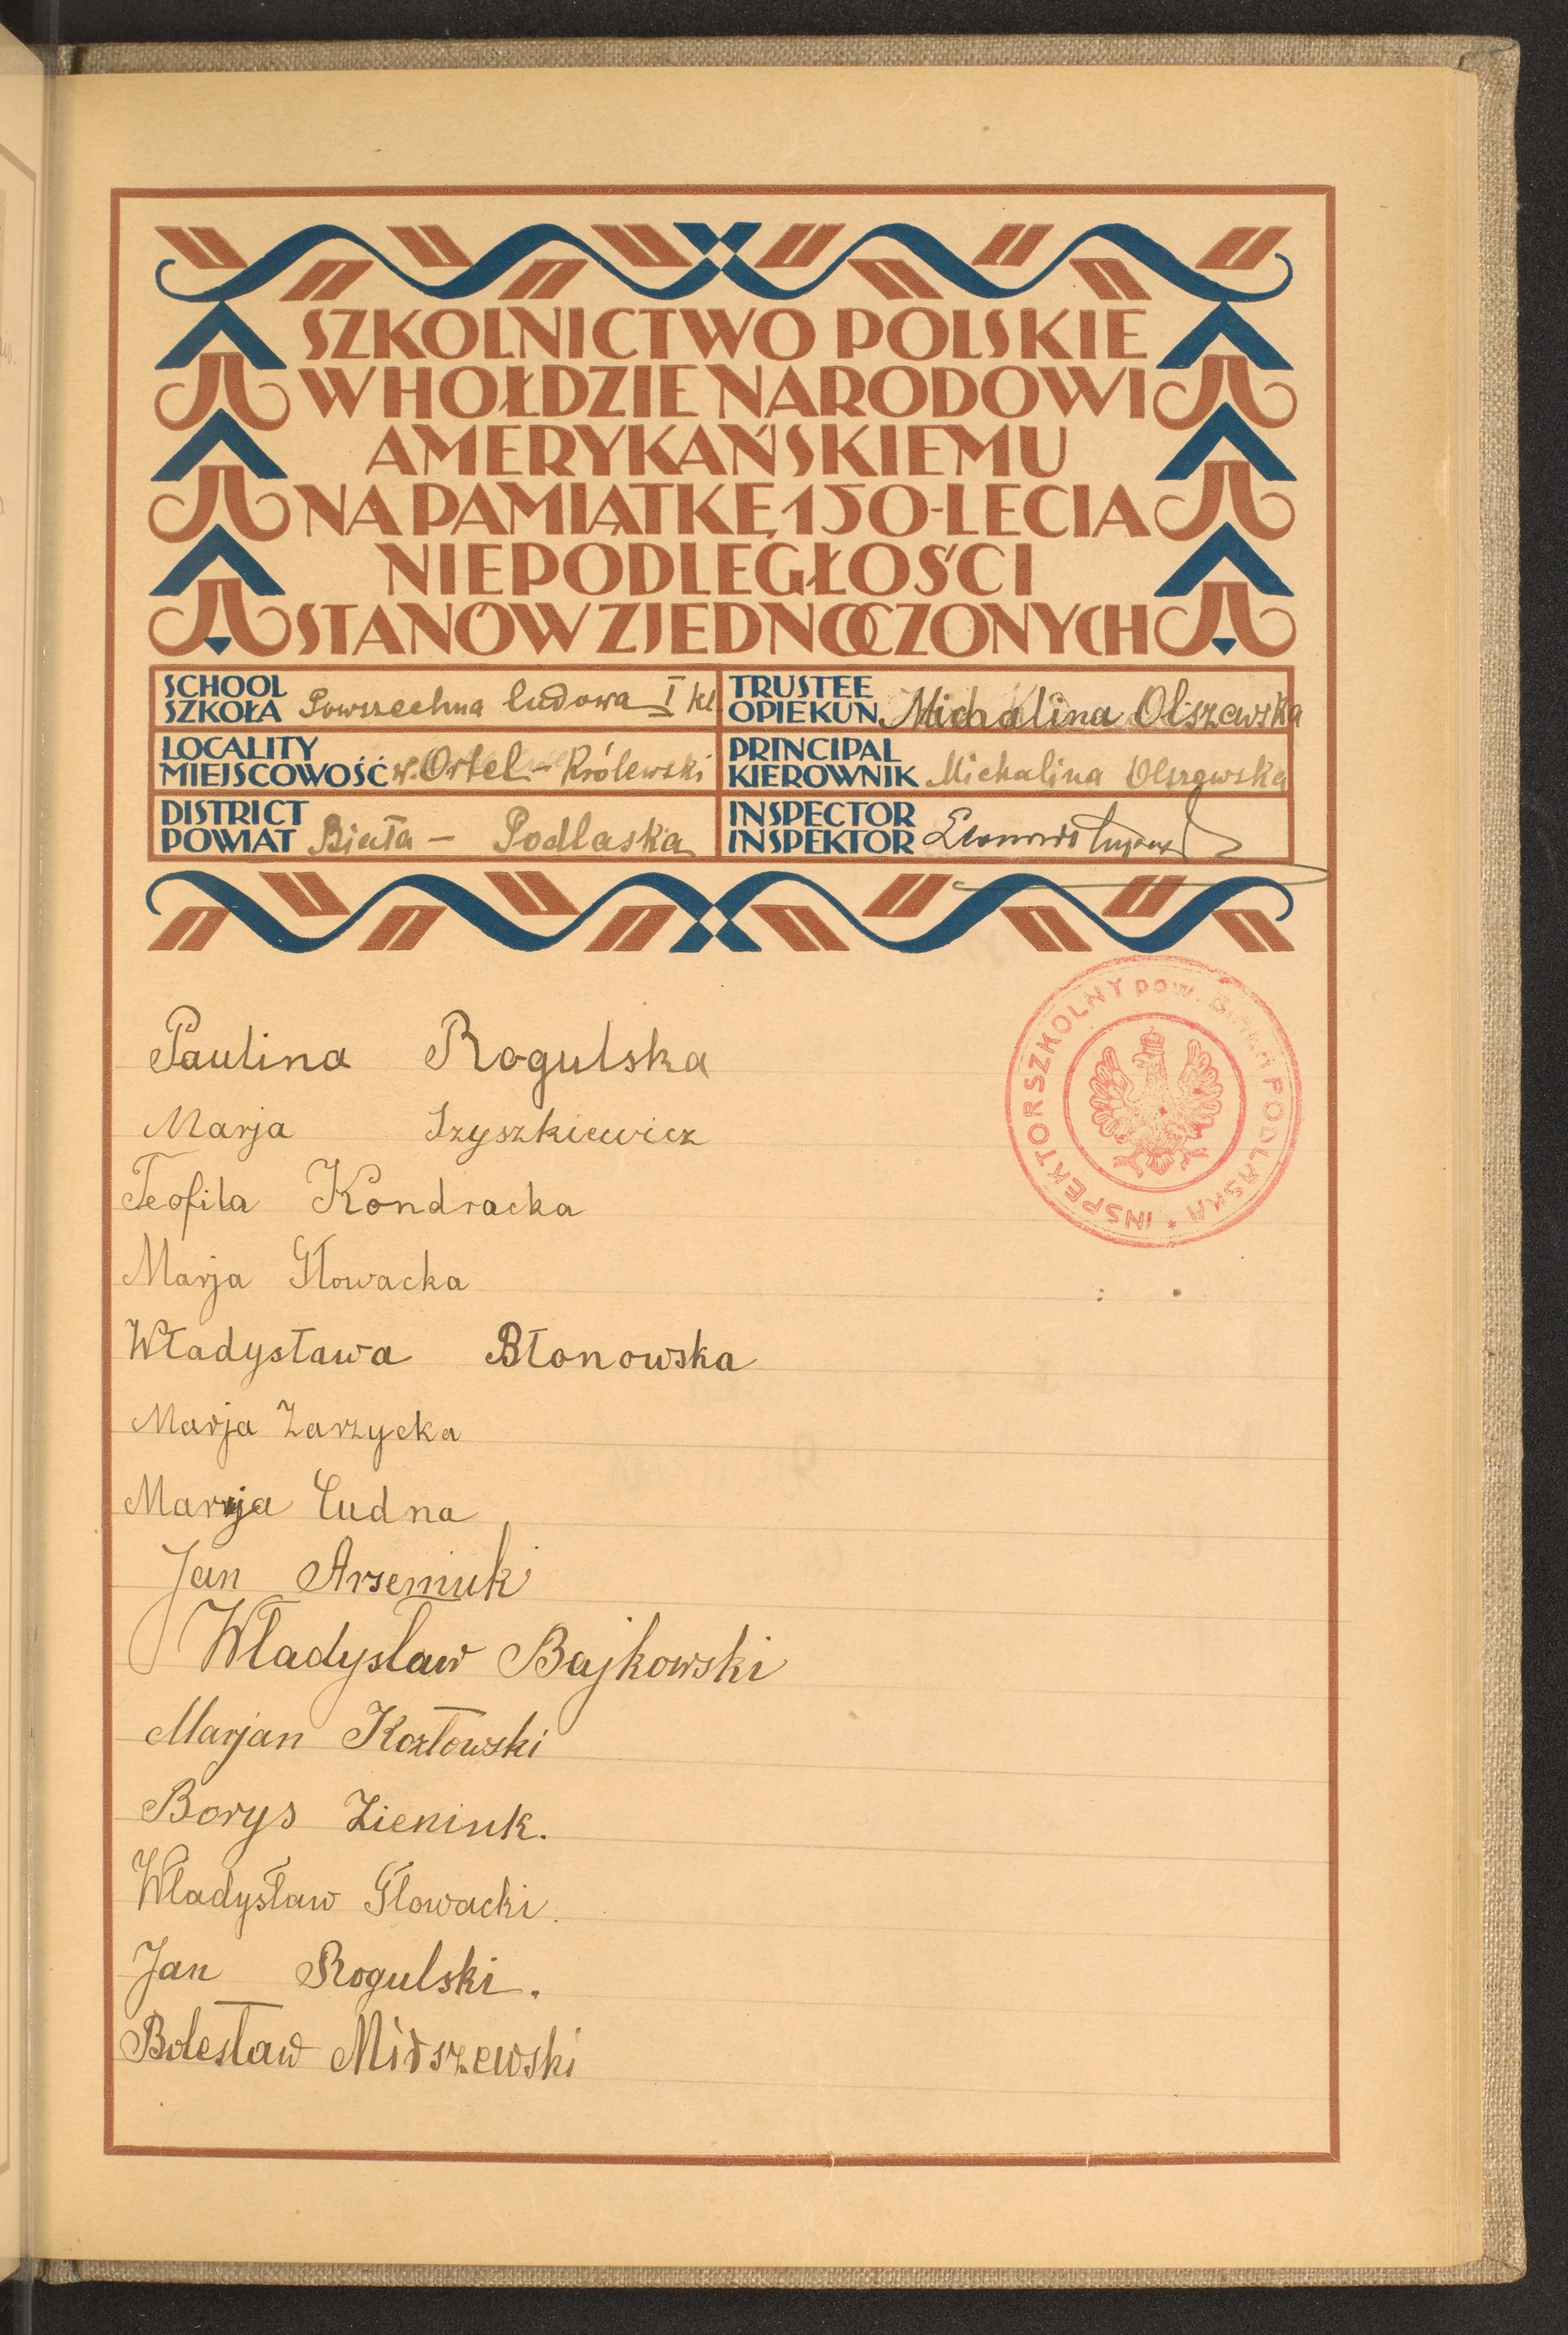 SZKOLNICTWO POLSKIE
W HOŁDZIE NARODOWI
AMERYKAŃSKIEMU
NA PAMIĄTKĘ 150-LECIA
NIEPODLEGŁOŚCI
STANÓW ZJEDNOCZONYCH
SCHOOL
SZKOŁA Powszechna ludowa I kl
TRUSTEE
OPIEKUN Michalina Olszewska
LOCALITY
MIEJSCOWOŚĆ w. Ortel - Królewski
PRINCIPAL
KIEROWNIK Michalina Olszewska
DISTRICT
POWIAT Biała - Podlaska
INSPECTOR
INSPEKTOR
INSPEKTOR SZKOLNY pow. BIAŁA PODLASKA *
Paulina Rogulska
Marja Szyszkiewicz
Teofila Kondracka
Marja Głowacka
Władysława Błonowska
Marja Zarzycka
Marja Łudna
Jan Arseniuk
Władysław Bajkowski
Marjan Kozłowski
Borys Zieniuk.
Władysław Głowacki.
Jan Rogulski.
Bolesław Mirszewski